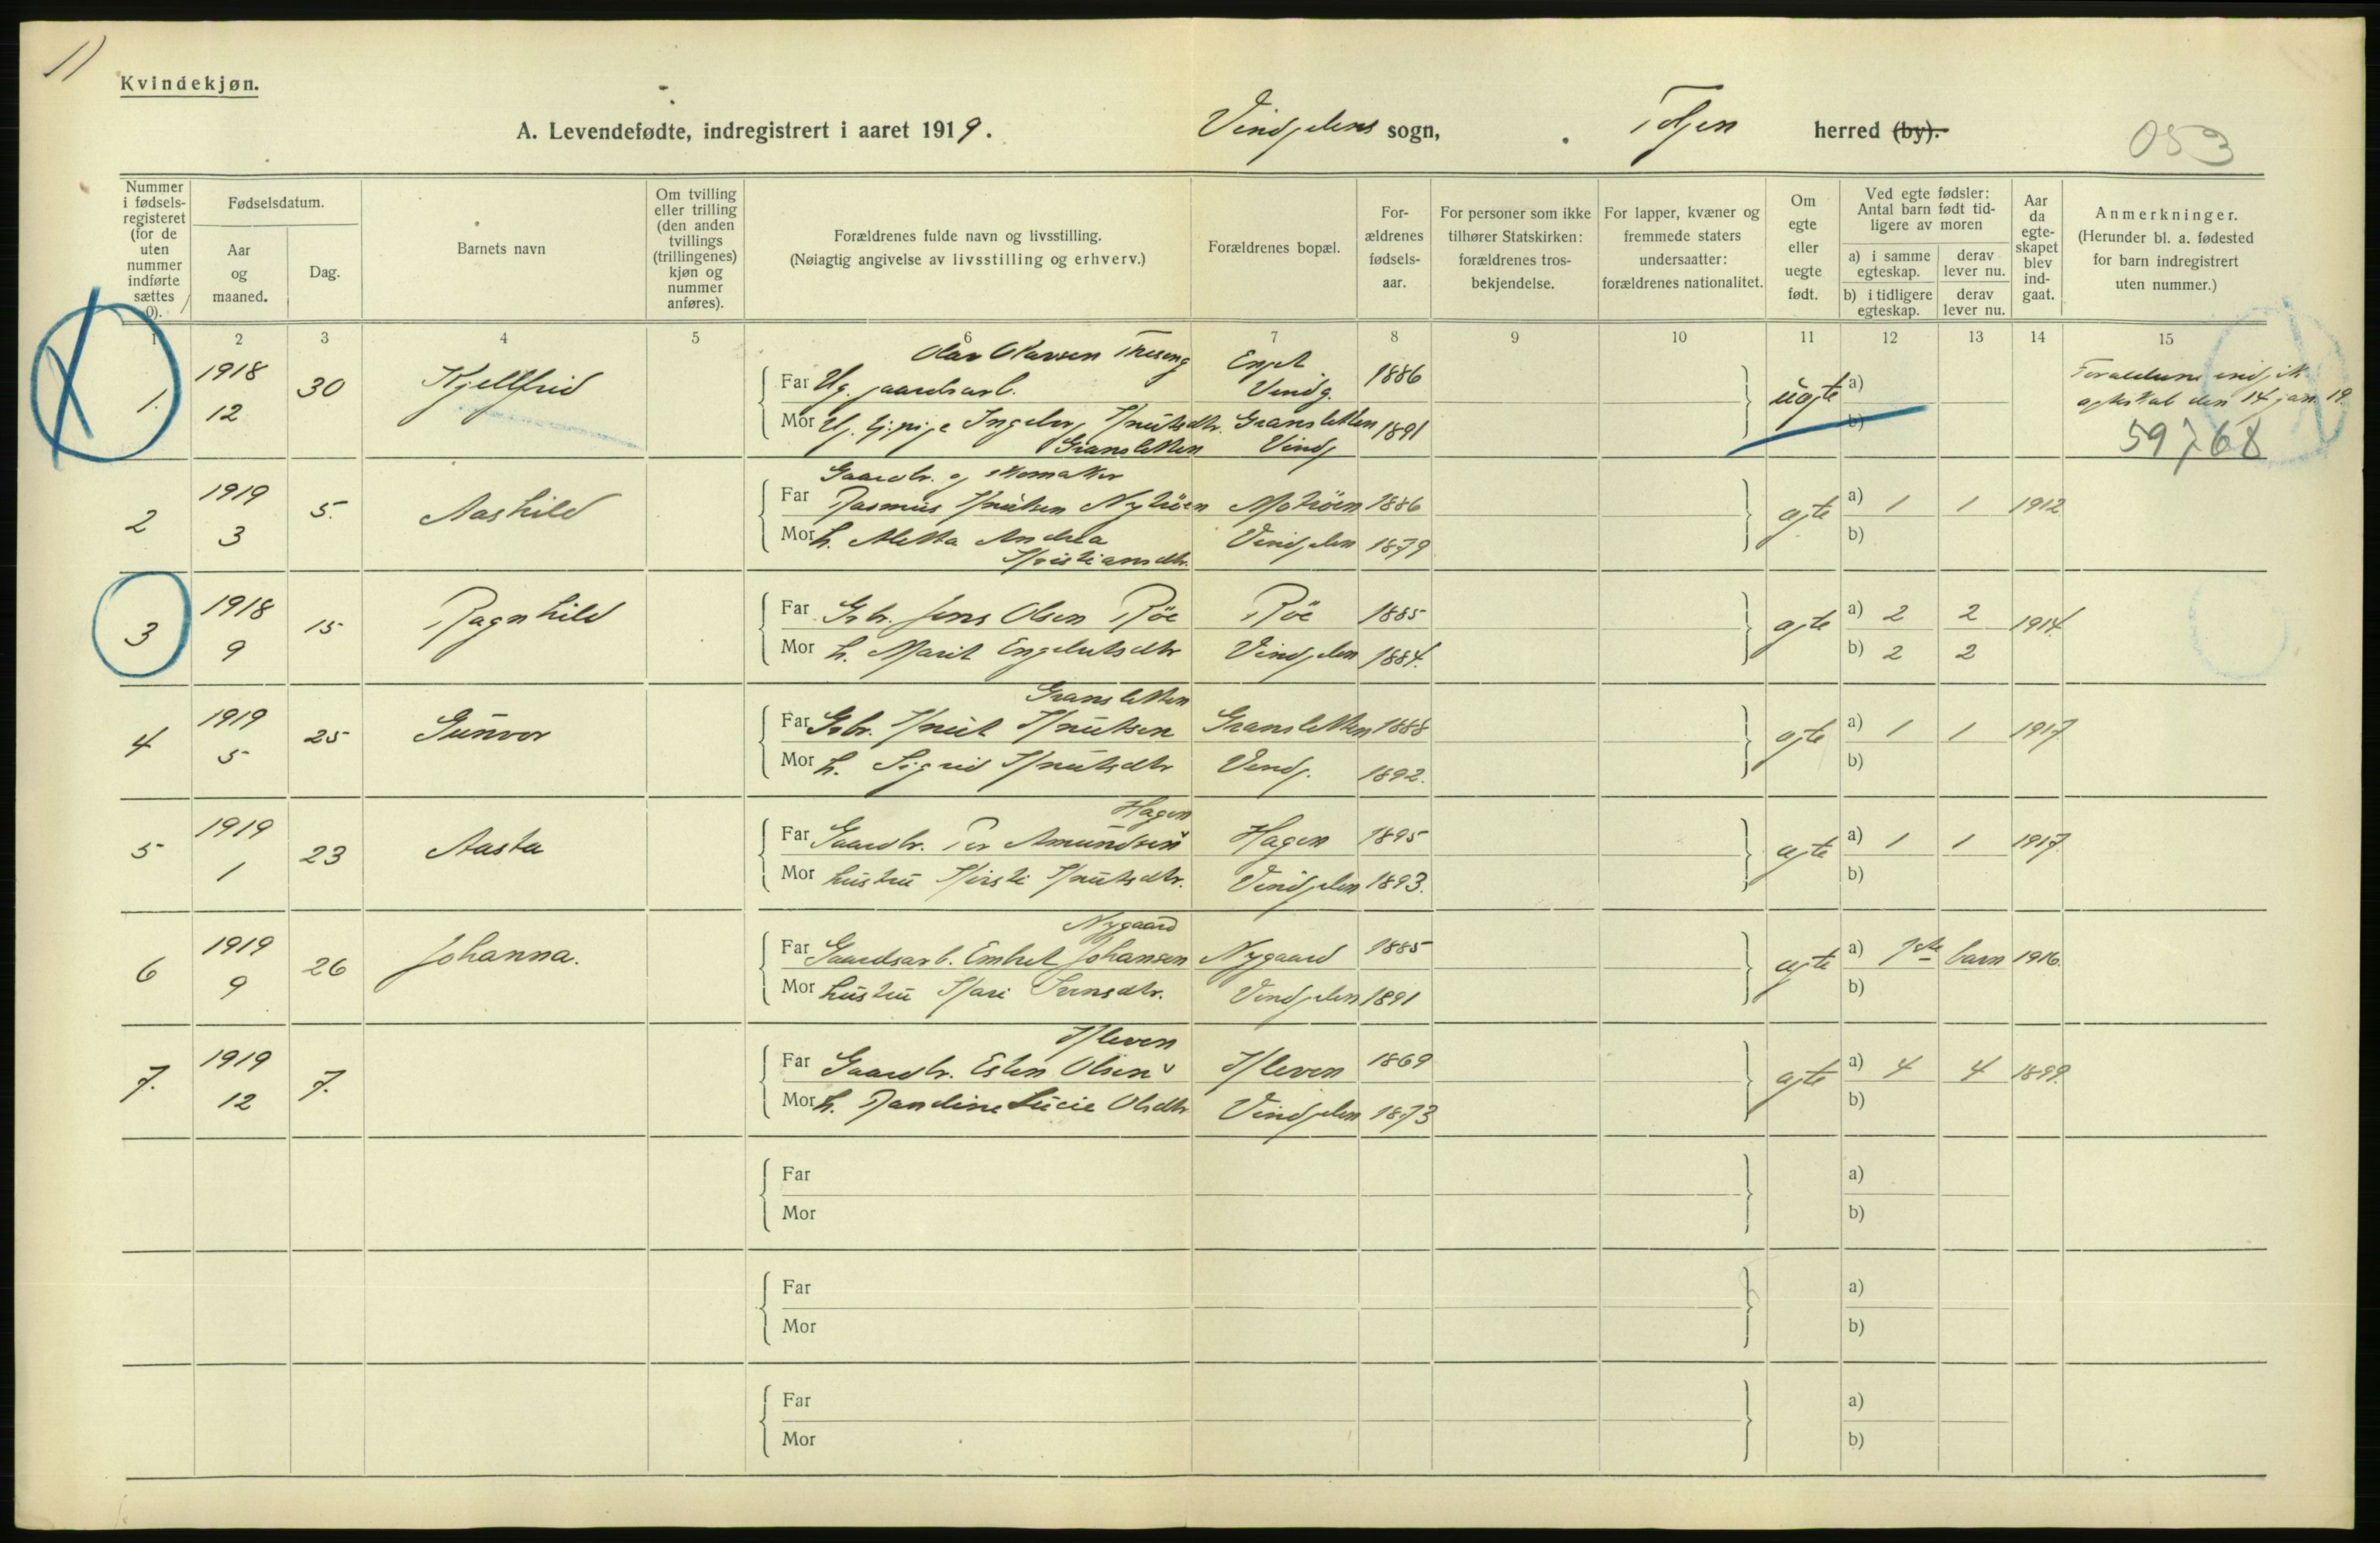 1)
Kvindekjøn.
A. Levendefødte, indregistrert i aaret 1919. Vingelens sogn, Tolgen herred (by).
053
Nummer i fødsels-registeret (for de uten nummer indførte sættes 0).
Fødselsdatum.
Aar og maaned.
Dag.
Barnets navn
Om tvilling eller trilling (den anden tvillings (trillingenes) kjøn og nummer anføres).
Forældrenes fulde navn og livsstilling.
(Nøiagtig angivelse av livsstilling og erhverv.)
Forældrenes bopæl.
For-ældrenes fødsels-aar.
For personer som ikke tilhører Statskirken: forældrenes tros-bekjendelse.
For lapper, kvæner og fremmede staters undersaatter: forældrenes nationalitet.
Om egte eller uegte født.
Ved egte fødsler: Antal barn født tid-ligere av moren
a) i samme egteskap.
derav lever nu.
b) i tidligere egteskap.
derav lever nu.
Aar da egte-skapet blev ind-gaat.
Anmerkninger.
(Herunder bl. a. fødested for barn indregistrert uten nummer.)
1 2 3 4 5 6 7 8 9 10 11 12 13 14 15
1. 1918 12 30 Kjellfrid
Far Ug. gaardsarb. Olav Olavsen Enget Ving. 1886
Mor Ug. Ingeborg Knutsdtr. Gransletten Gransletten Ving 1891
uegte a) b)
Forældrene indgik egteskab den 14 jan. 19.
59768
2 1919 3 5. Aashild
Far Gaardbr. og skomaker Rasmus Knutsen Nytrøen Motrøen 1886
Mor h. Aletta Andrea Kristiansdtr. Vingelen 1879
egte a) 1 1 1912
b)
3 1918 9 15 Ragnhild
Far Gbr. Jons Olsen Røe Røe 1885
Mor h. Marit Engebretsdtr Vingelen 1884.
egte a) 2 2 1914
b) 2 2
4 1919 5 25 Gunvor
Far Gbr. Knut Knutsen Gransletten Gransletten 1888
Mor h. Sigrid Knutsdtr Ving. 1892.
egte a) 1 1 1917
b)
5 1919 1 23 Aasta
Far Gaardbr. Per Amundsen Hagen Hagen 1895
Mor hustru Kirsti Knutsdtr. Vingelen 1893.
egte a) 1 1 1917
b)
6 1919 9 26 Johanna.
Far Gaardsarb. Embret Johansen Nygaard Nygaard 1885
Mor hustru Kari Svensdtr. Vingelen 1891
egte a) 1ste barn 1916.
b)
7. 1919 12 7.
Far Gaardbr. Esten Olsen Kleven Kleven 1869
Mor h. Randine Lucie Olsdtr Vingelen 1873
egte a) 4 4 1899.
b)
Far a)
Mor b)
Far a)
Mor b)
Far a)
Mor b)